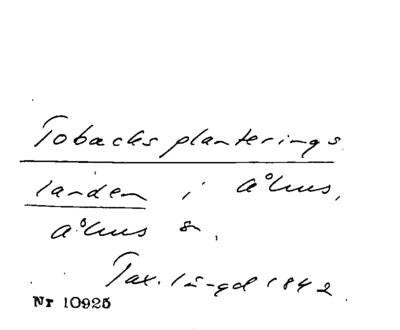 Tobacks planterings
landen i Åhus,
Åhus sn.
Tax. längd 1842.
Nr 10925